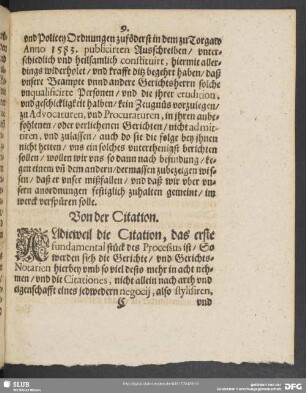 9.
vnd Policey Ordnungen zuförderst in dem zu Torgaw
Anno 1583. publicirten Ausschreiben / vnter-
schiedlich vnd heilsamlich constituirt, hiermit aller-
dings wiederholet / vnd krafft diß begehrt haben / daß
vnsere Beampte vnnd andere Gerichtsherrn solche
vnqualificirte Personen / vnd die ihrer erudition,
vnd geschickligkeit halben / kein Zeugnüs vorzulegen /
zu Advocaturen, vnd Procuraturen, in ihren anbe-
fohlenen / oder verliehenen Gerichten / nicht admit-
tiren, vnd zulassen / auch do sie die folge bey ihnen
nicht hetten / vns ein solches vnterthenigst berichten
sollen / wollen wir vns so dann nach befindung / ke-
gen einem vñ dem andern / dermassen zubezeigen wis-
sen / daß er vnser mißfallen / vnd daß wir vber vn-
sern anordnungen festiglich zuhalten gemeint / im
werck verspüren solle.
Von der Citation.
ALldieweil die Citation, das erste
fundamental stück des Processus ist / So
werden sich die Gerichte / vnd Gerichts-
Notarien hierbey vmb so viel desto mehr in acht neh-
men / vnd die Citationes, nicht allein nach arth vnd
eigenschafft eines jedwedern negocij, also stylisiren,
C vnd
SLUB
DFG